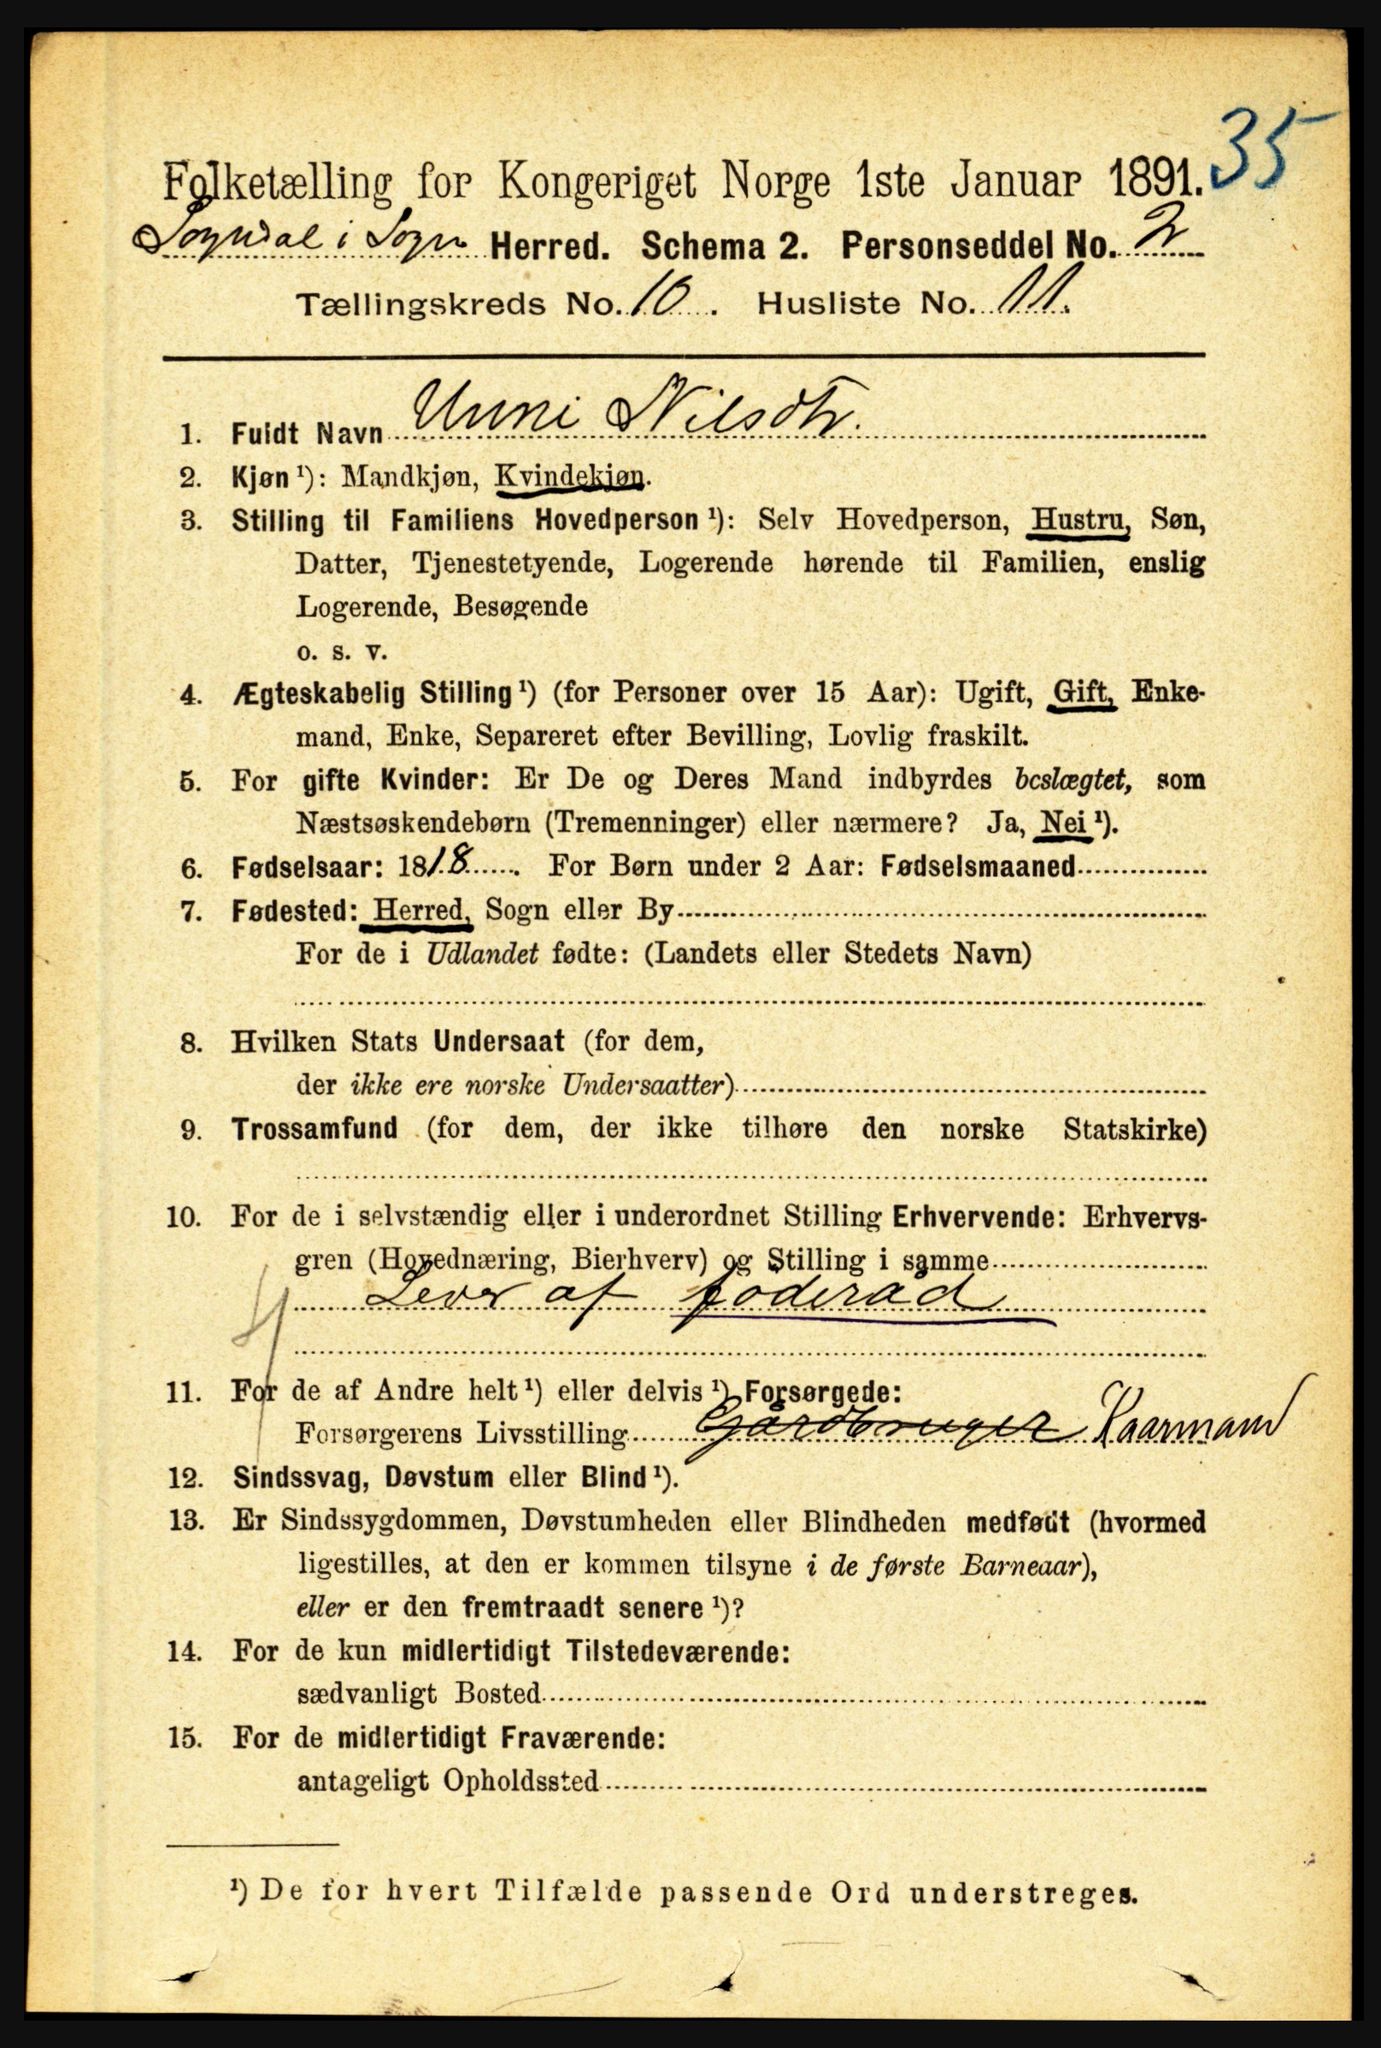 35
Folketælling for Kongeriget Norge 1ste Januar 1891.
Sogndal i Sogn Herred. Schema 2. Personseddel No. 2
Tællingskreds No. 10. Husliste No. 11.
1. Fuldt Navn Unni Nilsdtr.
2. Kjøn ¹): Mandkjøn, Kvindekjøn.
3. Stilling til Familiens Hovedperson ¹): Selv Hovedperson, Hustru, Søn,
Datter, Tjenestetyende, Logerende hørende til Familien, enslig
Logerende, Besøgende
o. s. v.
4. Ægteskabelig Stilling ¹) (for Personer over 15 Aar): Ugift, Gift, Enke-
mand, Enke, Separeret efter Bevilling, Lovlig fraskilt.
5. For gifte Kvinder: Er De og Deres Mand indbyrdes beslægtet, som
Næstsøskendebørn (Tremenninger) eller nærmere? Ja, Nei ¹).
6. Fødselsaar: 1818. For Børn under 2 Aar: Fødselsmaaned
7. Fødested: Herred, Sogn eller By
For de i Udlandet fødte: (Landets eller Stedets Navn)
8. Hvilken Stats Undersaat (for dem,
der ikke ere norske Undersaatter)
9. Trossamfund (for dem, der ikke tilhøre den norske Statskirke)
10. For de i selvstændig eller i underordnet Stilling Erhvervende: Erhvervs-
gren (Hovednæring, Bierhverv) og Stilling i samme
Lever af foderad
11. For de af Andre helt ¹) eller delvis ¹) Forsørgede:
Forsørgerens Livsstilling Gårdbruger Kaarmand
12. Sindssvag, Døvstum eller Blind ¹).
13. Er Sindssygdommen, Døvstumheden eller Blindheden medfødt (hvormed
ligestilles, at den er kommen tilsyne i de første Barneaar),
eller er den fremtraadt senere ¹)?
14. For de kun midlertidigt Tilstedeværende:
sædvanligt Bosted
15. For de midlertidigt Fraværende:
antageligt Opholdssted
¹) De for hvert Tilfælde passende Ord understreges.